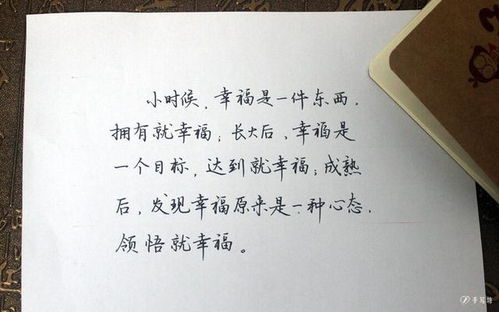 小时候，幸福是一件东西，
拥有就幸福；长大后，幸福是
一个目标，达到就幸福；成熟
后，发现幸福原来是一种心态，
领悟就幸福。
手写的